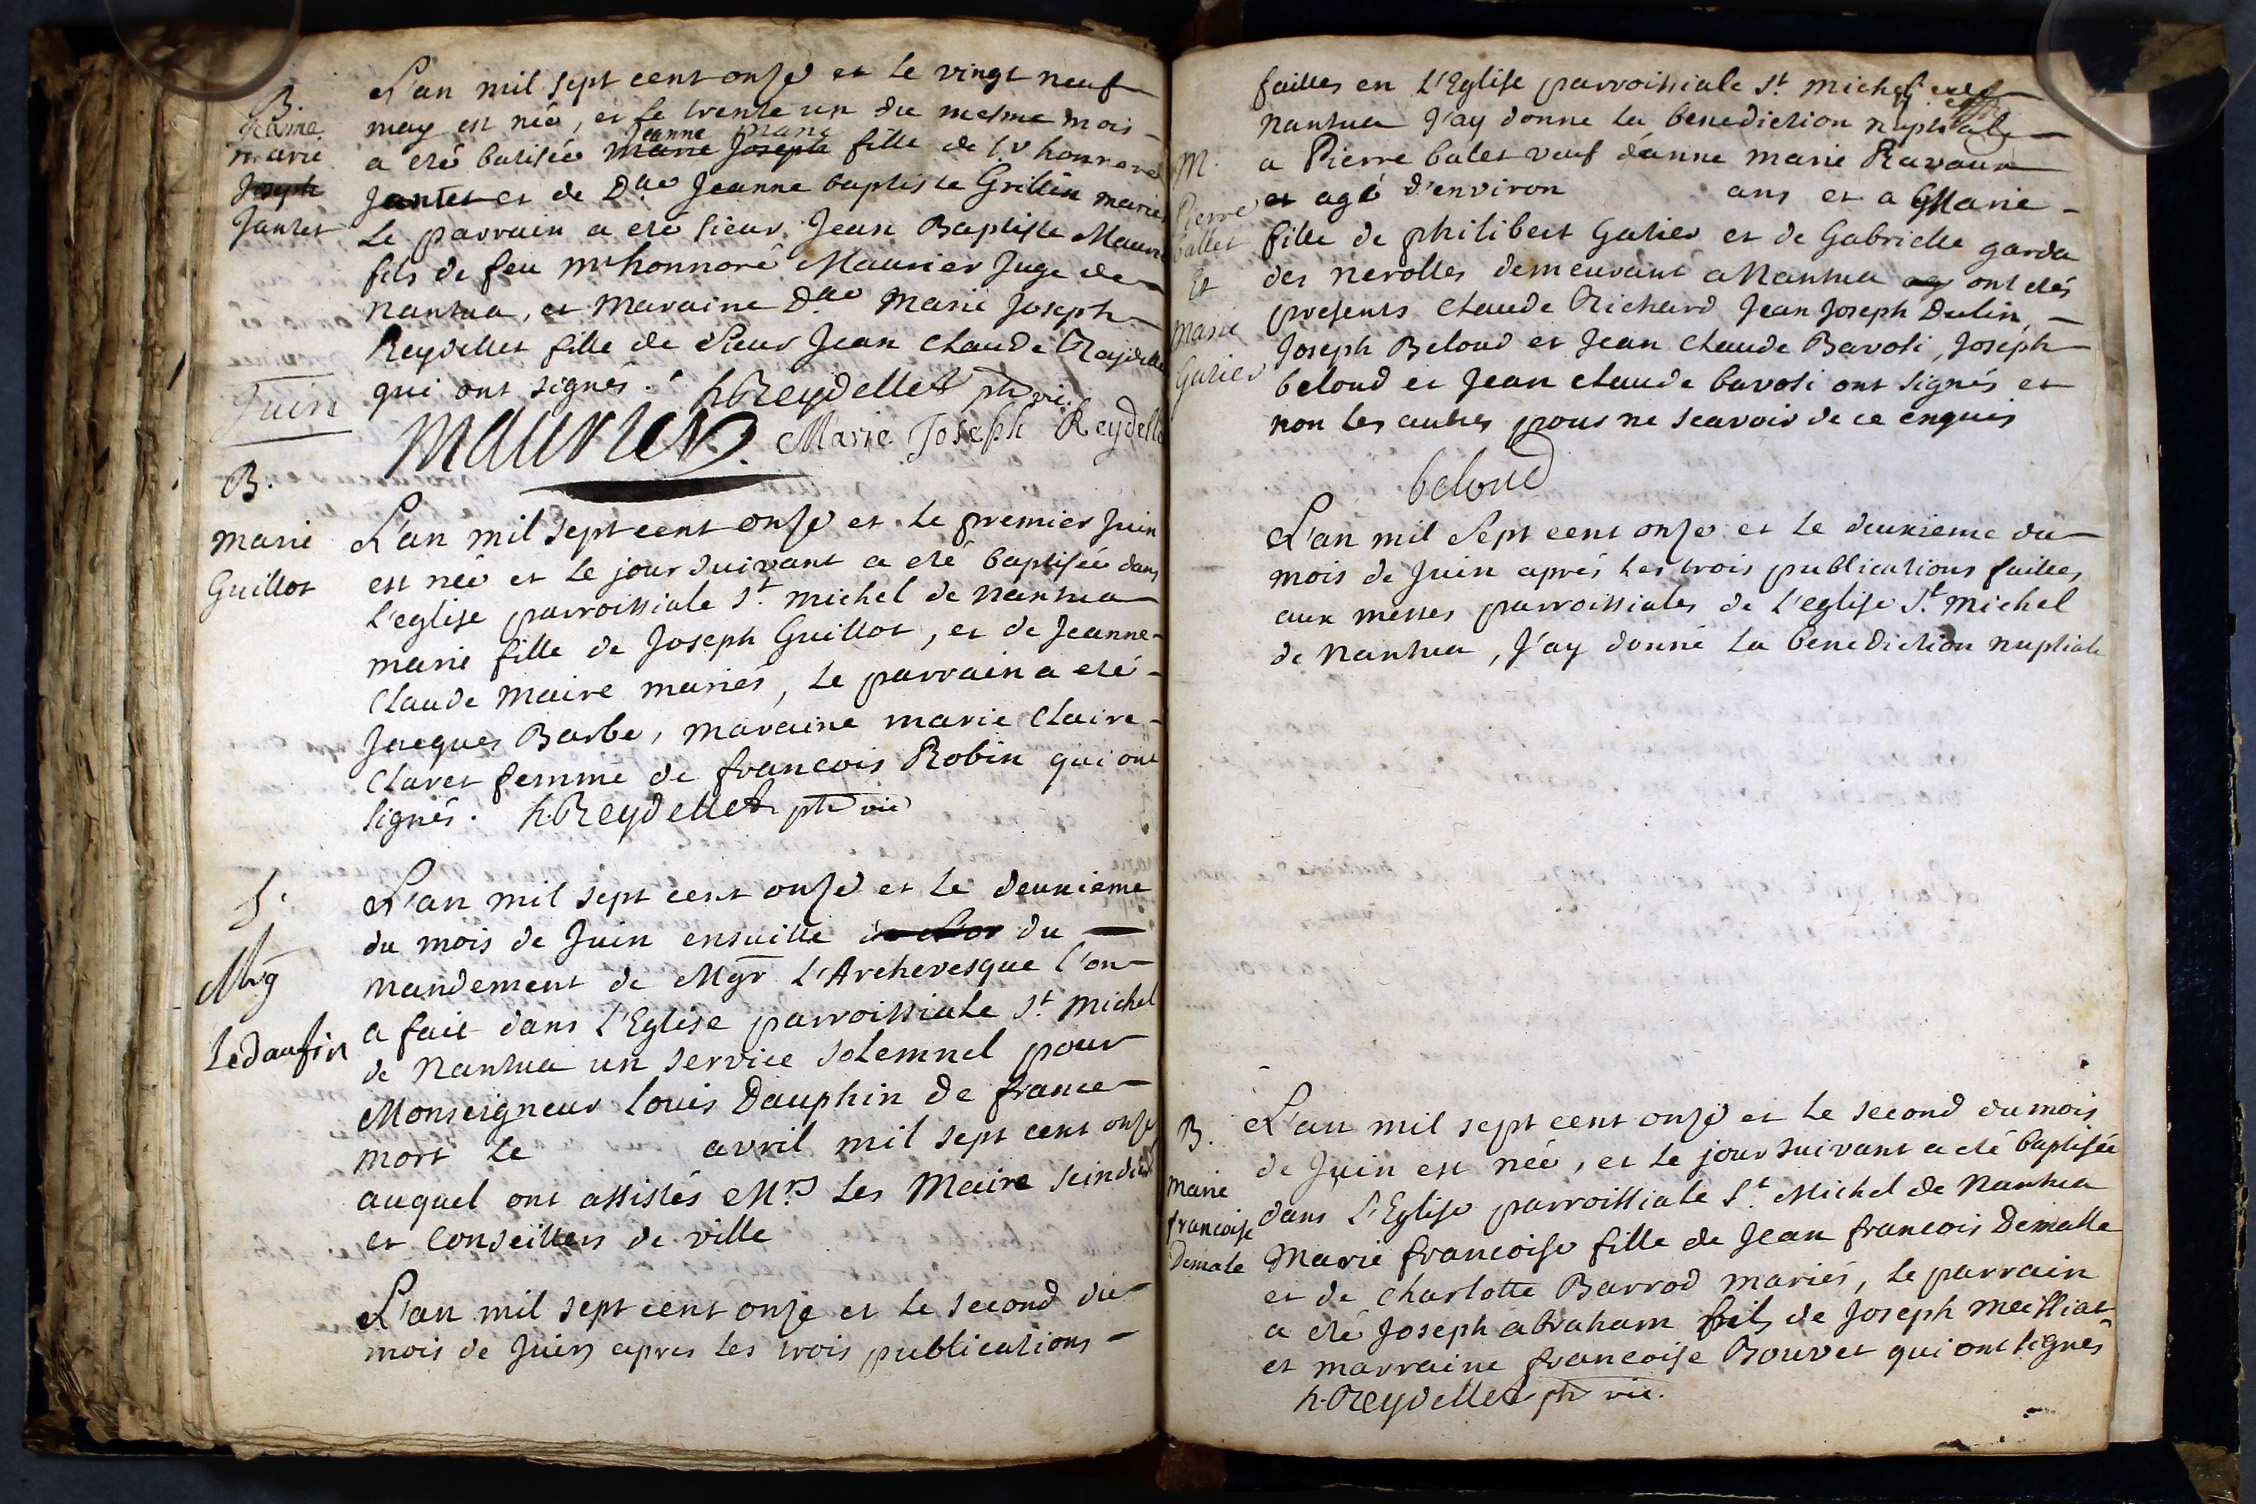 B.
Jeanne
marie
Joseph
Jantet
L'an mil sept cent onze et le vingt neuf
may est née, et le trente un du mesme mois
a eté batisée Jeanne marie Marie Joseph fille de Sr honnoré
Jantet et de Dlle Jeanne baptiste Grillin mariés
le parrain a eté sieur Jean Baptiste Maurier
fils de feu Mr honnoré Maurier Juge de
Nantua, et maraine Dlle Marie Joseph
Reydellet fille de Sieur Jean Claude Reydellet
qui ont signés. h. Reydellet ptre vic.
Maurier. Marie Joseph Reydellet
Juin
B.
marie
Guillot
L'an mil sept cent onze et le premier Juin
est née et le jour suivant a eté baptisée dans
l'eglise parroissiale St. michel de Nantua
marie fille de Joseph Guillot, et de Jeanne
Claude Maire mariés, le parrain a eté
Jacques Barbe, maraine marie Claire
Claret femme de francois Robin qui ont
signés. h. Reydellet ptre vic
S.
Mg
Le daufin
L'an mil sept cent onze et le deuxieme
du mois de Juin ensuitte du
mandement de Mgr L'Archevesque l'on
a fait dans l'Eglise parroissiale St. Michel
de Nantua un service solemnel pour
Monseigneur Louis Dauphin de france
mort le avril mil sept cent onze
auquel ont assistés Mrs les Maire scindics
et Conseillers de ville
L'an mil sept cent onze et le second du
mois de Juin apres les trois publications
faittes en l'Eglise parroissiale St. Michel de
Nantua J'ay donne la benediction nuptiale
M.
Pierre
ballet
Et
Marie
Gatier
a Pierre balet veuf d'anne marie Ravaux
et agé d'environ ans et a Marie
fille de philibert Gatier et de Gabrielle garda
des nerolles demeurant a Nantua ont etés
presents Claude Richard Jean Joseph Dulin,
Joseph Beloud et Jean Claude Bavosi, Joseph
beloud et Jean claude bavosi ont signés et
non les autres pour ne scavoir de ce enquis
beloud
L'an mil sept cent onze et le deuxieme du
mois de Juin aprés les trois publications faittes
aux messes parroissiales de l'eglise St. Michel
de Nantua, J'ay donné la benediction nuptiale
B.
Marie
francoise
Demale
L'an mil sept cent onze et le second du mois
de Juin est née, et le jour suivant a eté baptisée
dans l'Eglise parroissiale St. Michel de Nantua
Marie francoise fille de Jean francois Demalle
et de Charlotte Barrod mariés, le parrain
a eté Joseph abraham fils de Joseph meilliat
et marraine francoise Bouvet qui ont signés
h. Reydellet ptre vic.